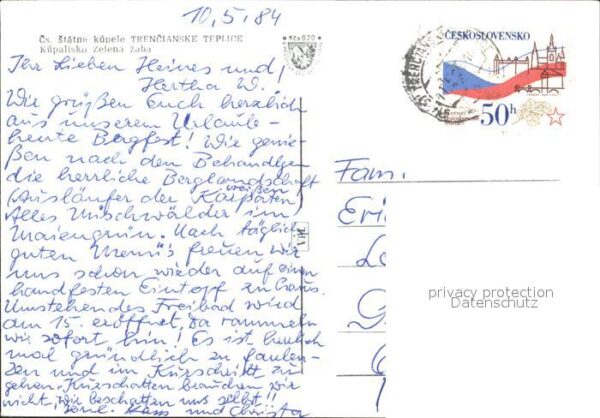 10.5.84
Čs. štátne kúpele TRENČIANSKE TEPLICE
Kúpalisko Zelená žaba
Kčs 0,20
ČESKOSLOVENSKO
50h
Ihr Lieben Heines und
Hertha W.!
Wir grüßen Euch herzlich
aus unserem Urlaub –
heute Bergfest! Wir genie-
ßen nach den Behandlgen
die herrliche Berglandschaft
(Ausläufer der weißen Karpaten)
Alles Mischwälder im
Maiengrün. Nach täglich
guten Menü's freuen wir
uns schon wieder auf einen
handfesten Eintopf zu Haus.
Umstehendes Freibad wird
am 15. eröffnet, da rammeln
wir sofort hin! Es ist herrlich
mal gründlich zu faulen-
zen und im Kurschritt zu
gehen. Kurschatten brauchen wir
nicht, wir beschatten uns selbst!!
und Christa
Fam.
Eri
privacy protection
Datenschutz